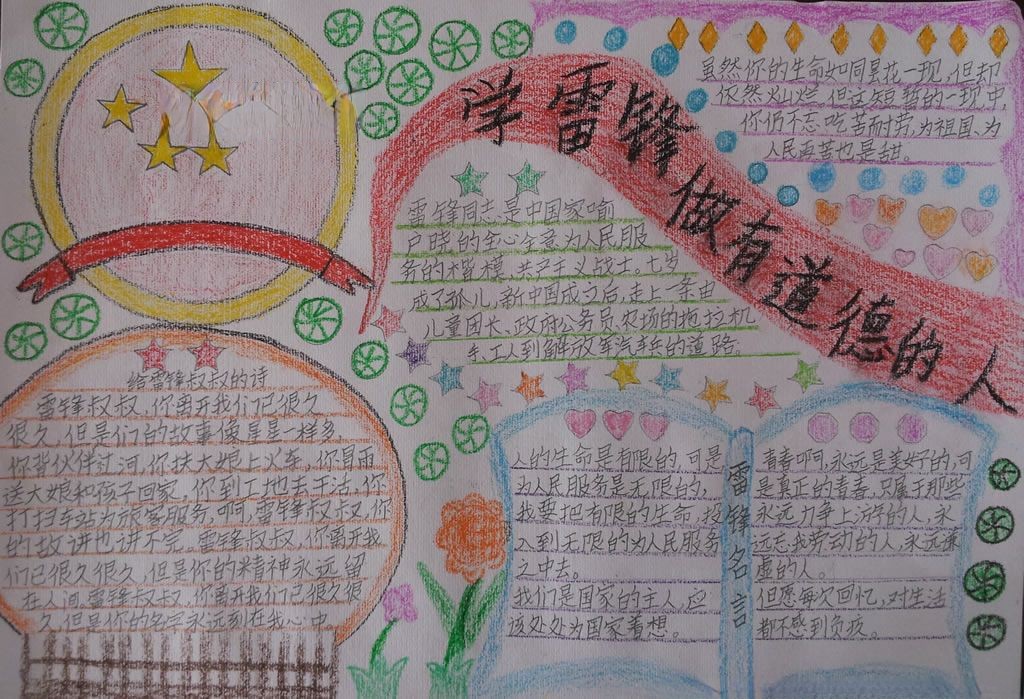 学雷锋做有道德的人
虽然你的生命如同昙花一现,但却
依然灿烂。但这短暂的一现中,
你仍不忘吃苦而耐劳,为祖国、为
人民再苦也是甜。
雷锋同志是中国家喻
户晓的全心全意为人民服
务的楷模,共产主义战士。七岁
成了孤儿,新中国成立后,走上一条由
儿童团长、政府公务员、农场的拖拉机
手、工人到解放军汽车兵的道路。
给雷锋叔叔的诗
雷锋叔叔,你离开我们已很久
很久,但是们的故事像星星一样多,
你背伙伴过河,你扶大娘上火车,你冒雨
送大娘和孩子回家,你到工地去干活,你
打扫车站为旅客服务,啊,雷锋叔叔,你
的故讲也讲不完。雷锋叔叔,你离开我
们已很久很久,但是你的精神永远留
在人间。雷锋叔叔,你离开我们已很久很
久,但是你的名字永远刻在我心中。
人的生命是有限的,可是
为人民服务是无限的,
我要把有限的生命,投
入到无限的为人民服务
之中去。
我们是国家的主人,应
该处处为国家着想。
雷锋名言
青春啊,永远是美好的,可
是真正的青春,只属于那些
永远力争上游的人,永
远忘我劳动的人,永远谦
虚的人。
但愿每次回忆,对生活
都不感到负疚。